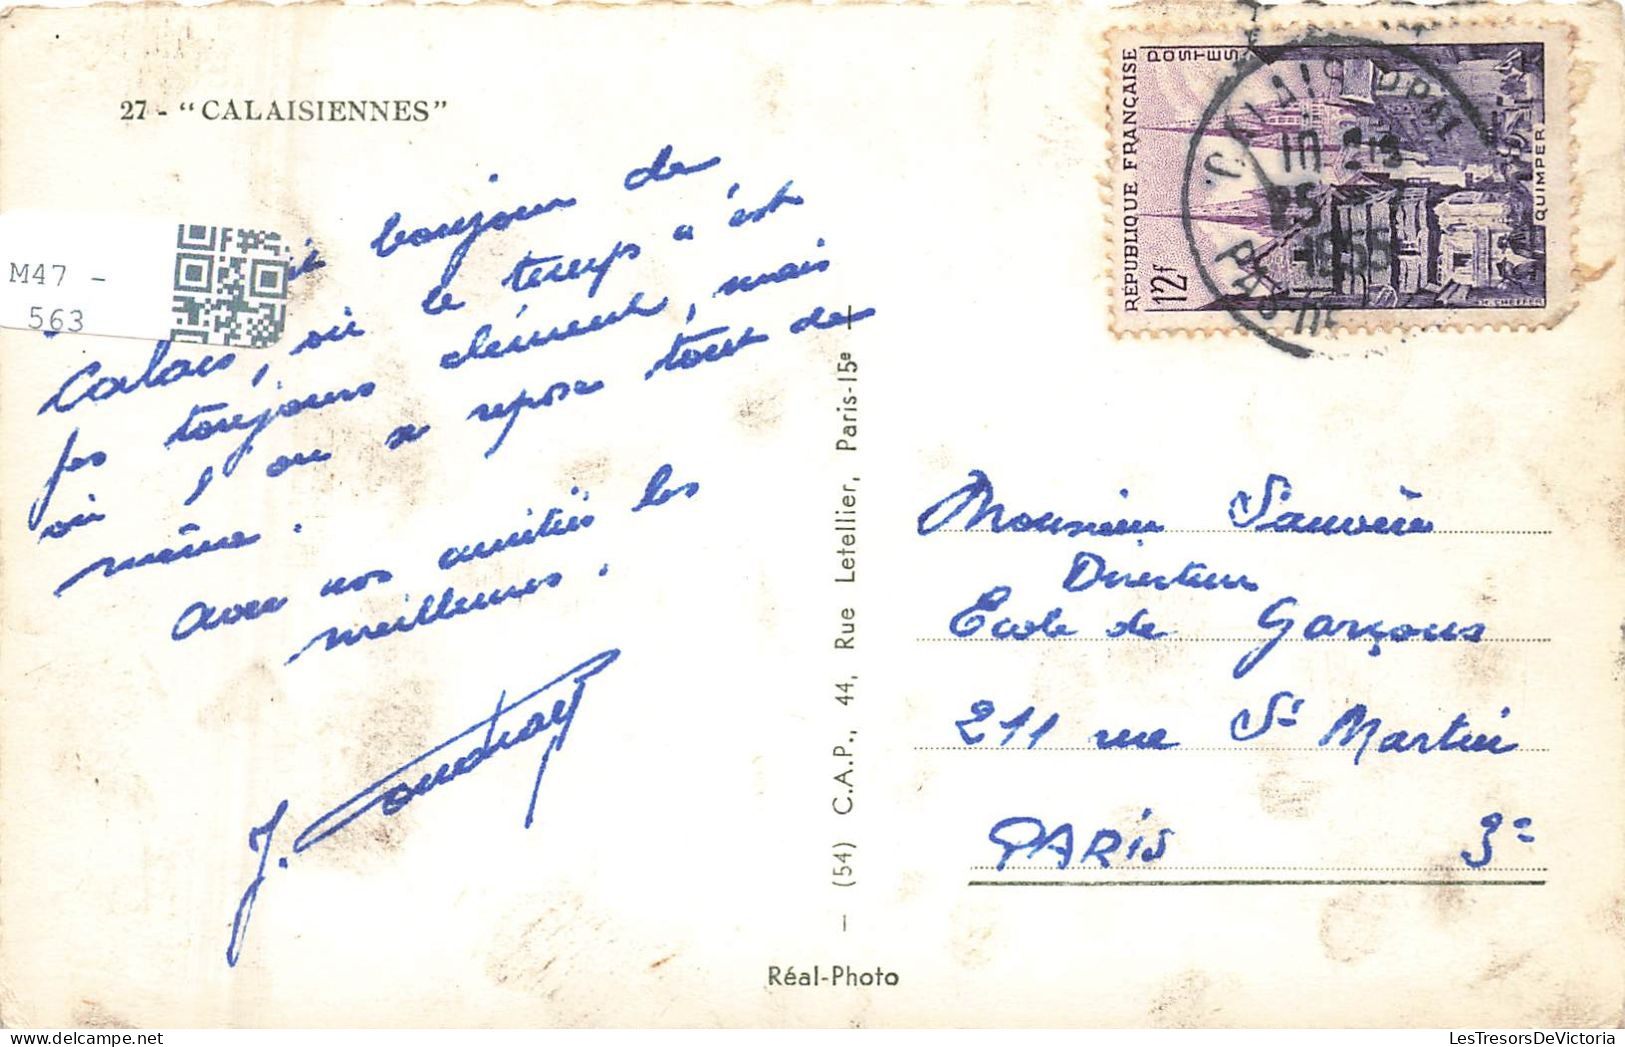 27 - “CALAISIENNES”
M47 -
563
bonjour de
Calais, où le temps n'est
pas toujours clément, mais
où l'on se repose tout de
même.
Avec nos amitiés les
meilleures.
J.
— (54) C.A.P., 44, Rue Letellier, Paris-15e —
Réal-Photo
RÉPUBLIQUE FRANÇAISE
POSTES
12f
QUIMPER
CALAIS
1955
Monsieur
Directeur
Ecole de Garçons
211 rue St Martin
PARIS 3e
LesTresorsDeVictoria